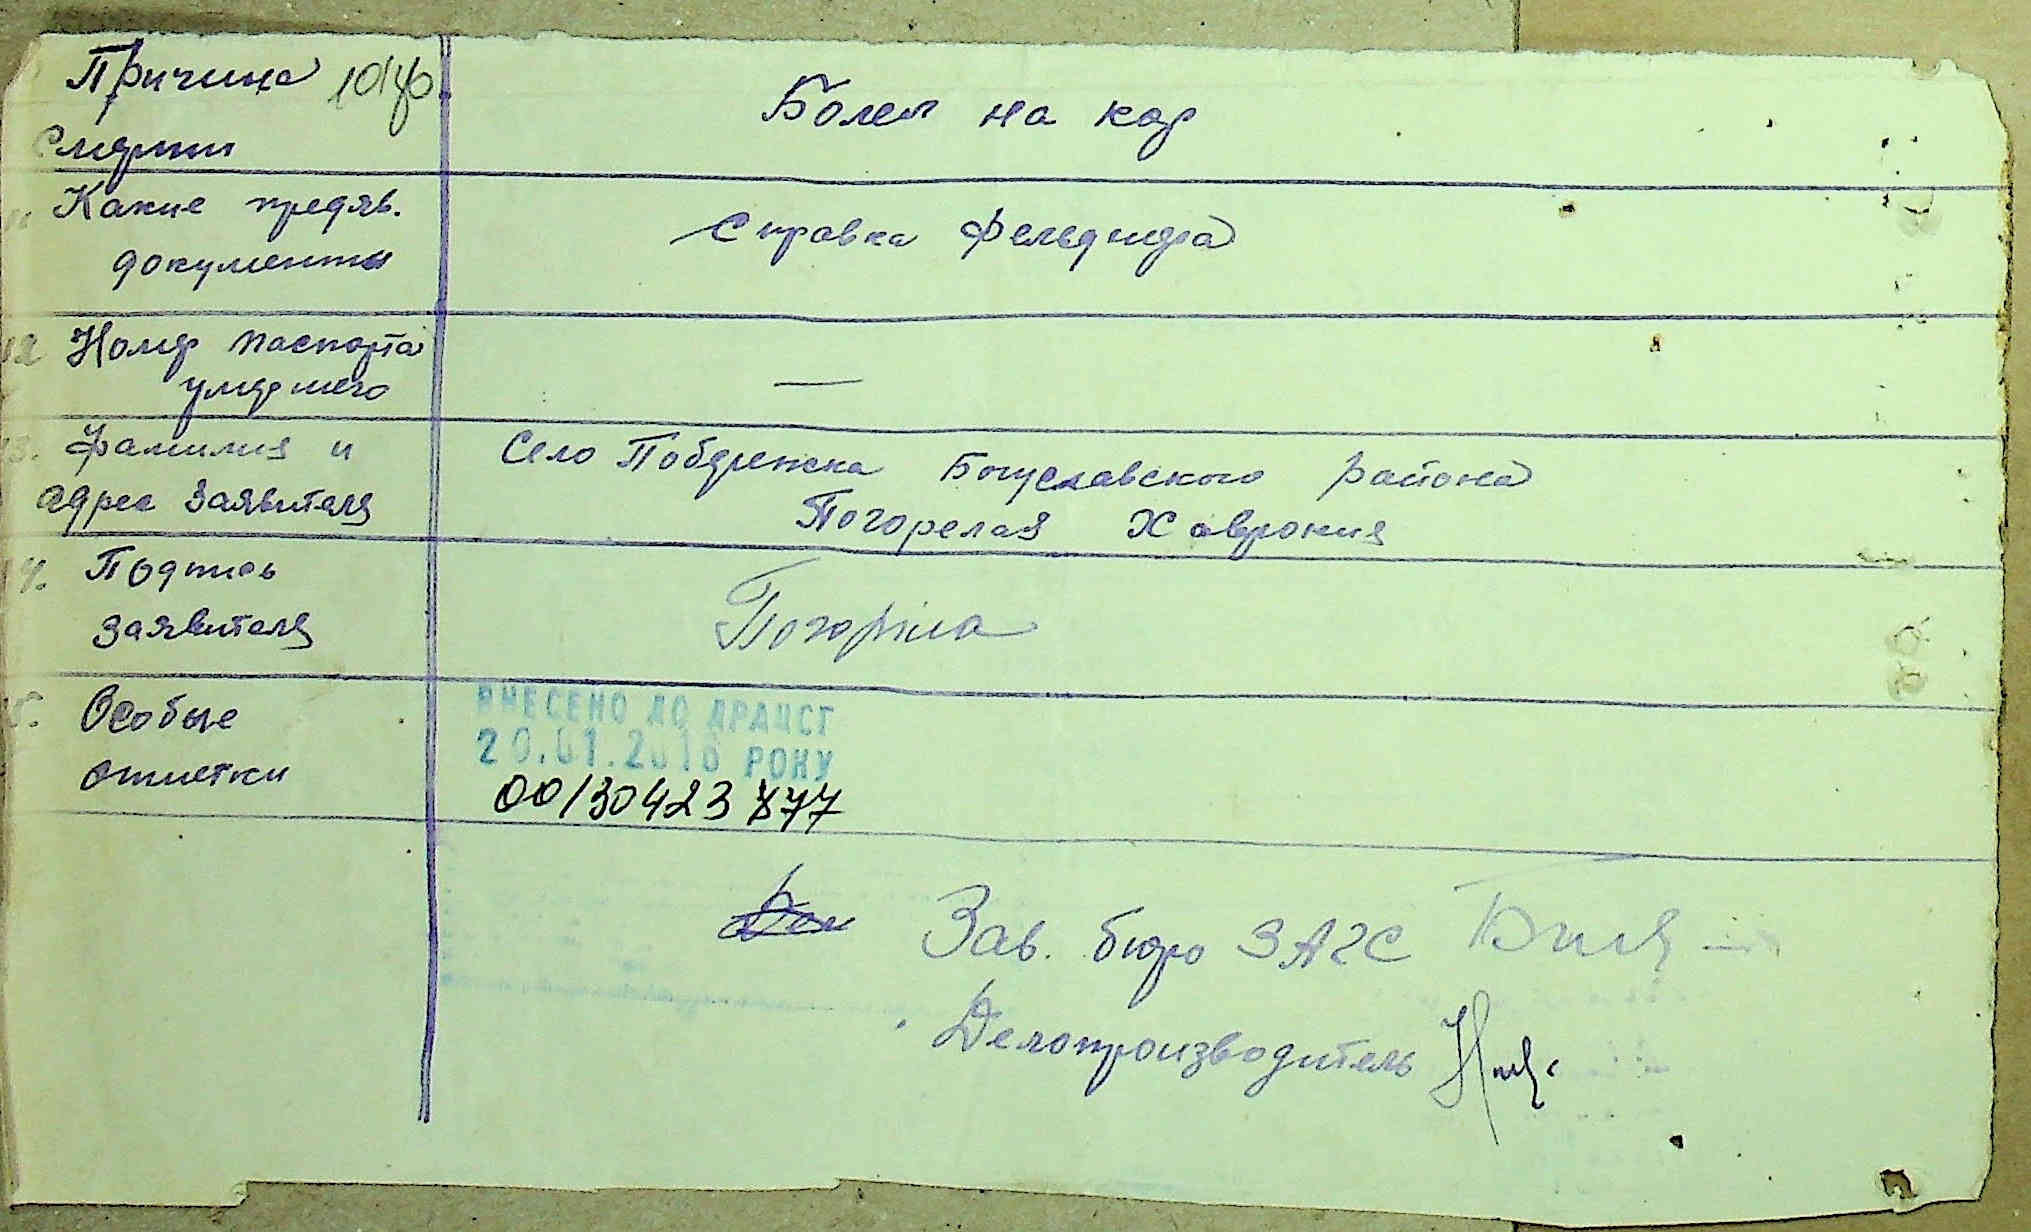 Причина
смерти
Болел на кор
Какие предяв.
документы
Справка фельдшера
12 Номер паспорта
умершего
—
13. Фамилия и
адрес заявителя
Село Побережка Богуславского района
Погорелая Хаврония
14. Подпись
заявителя
Погоріла
15. Особые
отметки
ВНЕСЕНО ДО ДРАЦСГ
20.01.2016 РОКУ
00130423877
Зав. бюро ЗАГС
Делопроизводитель